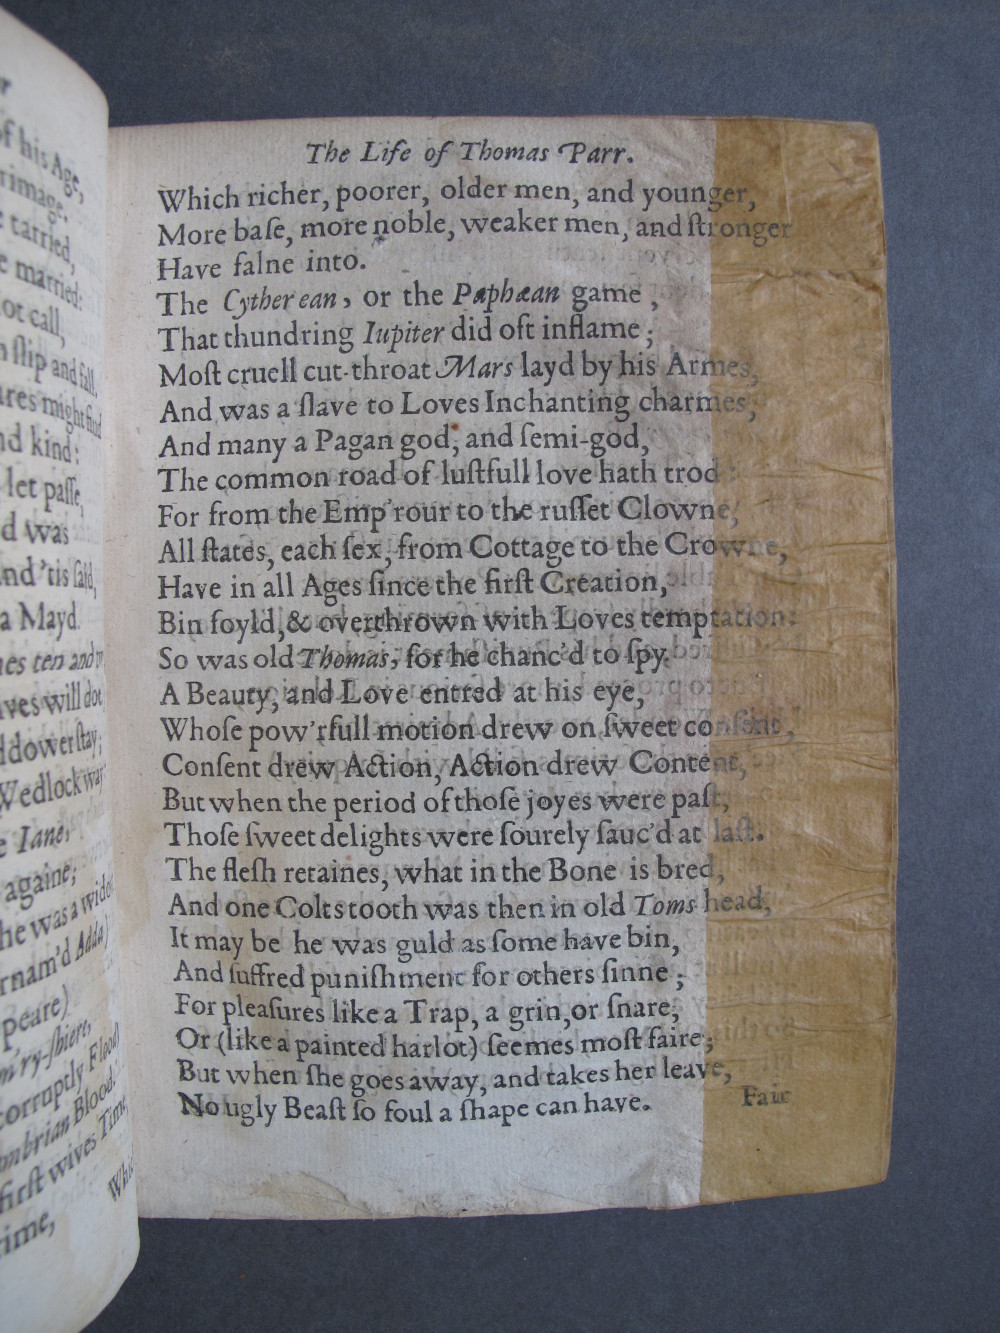 r
of his Age,
rimage.
e tarried,
e married:
ot call,
n ſlip and fall.
ares might find
nd kind:
let paſſe,
d was
and 'tis ſaid,
a Mayd.
nes ten and
ives will dot
ddower ſtay;
Wedlock way
e Iane,
againe;
he was a widow
rnam'd Adda)
peare)
m'ry-ſhiere,
corruptly Flood)
mbrian Blood.
firſt wives Time,
time,
Whic
The Life of Thomas Parr.
Which richer, poorer, older men, and younger,
More baſe, more noble, weaker men, and ſtronger
Have falne into.
The Cytherean, or the Paphæan game,
That thundring Iupiter did oft inflame;
Moſt cruell cut-throat Mars layd by his Armes,
And was a ſlave to Loves Inchanting charmes,
And many a Pagan god, and ſemi-god,
The common road of luſtfull love hath trod:
For from the Emp'rour to the ruſſet Clowne,
All ſtates, each ſex, from Cottage to the Crowne,
Have in all Ages ſince the firſt Creation,
Bin foyld, & overthrown with Loves temptation:
So was old Thomas, for he chanc'd to ſpy
A Beauty, and Love entred at his eye,
Whoſe pow'rfull motion drew on ſweet conſent,
Conſent drew Action, Action drew Content,
But when the period of thoſe joyes were paſt,
Thoſe ſweet delights were ſourely ſauc'd at laſt.
The fleſh retaines, what in the Bone is bred,
And one Colts tooth was then in old Toms head,
It may be he was guld as ſome have bin,
And ſuffred puniſhment for others ſinne;
For pleaſures like a Trap, a grin, or ſnare,
Or (like a painted harlot) ſeemes moſt faire;
But when ſhe goes away, and takes her leave,
No ugly Beaſt ſo foul a ſhape can have.
Fair